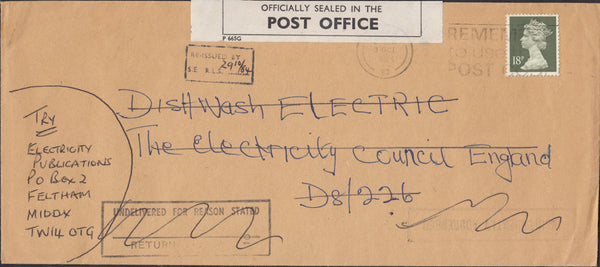 OFFICIALLY SEALED IN THE
POST OFFICE
P 665G
RE-ISSUED BY
S.E. R.L.S. 29/10/84
REMEMBER
to use
POST
18P
TRY
ELECTRICITY
PUBLICATIONS
PO Box 2
FELTHAM
MIDDX
TW14 OTG
DisHWash ELECTRIC
The Electricity Council England
DS/226
UNDELIVERED FOR REASON STATED
RETURN